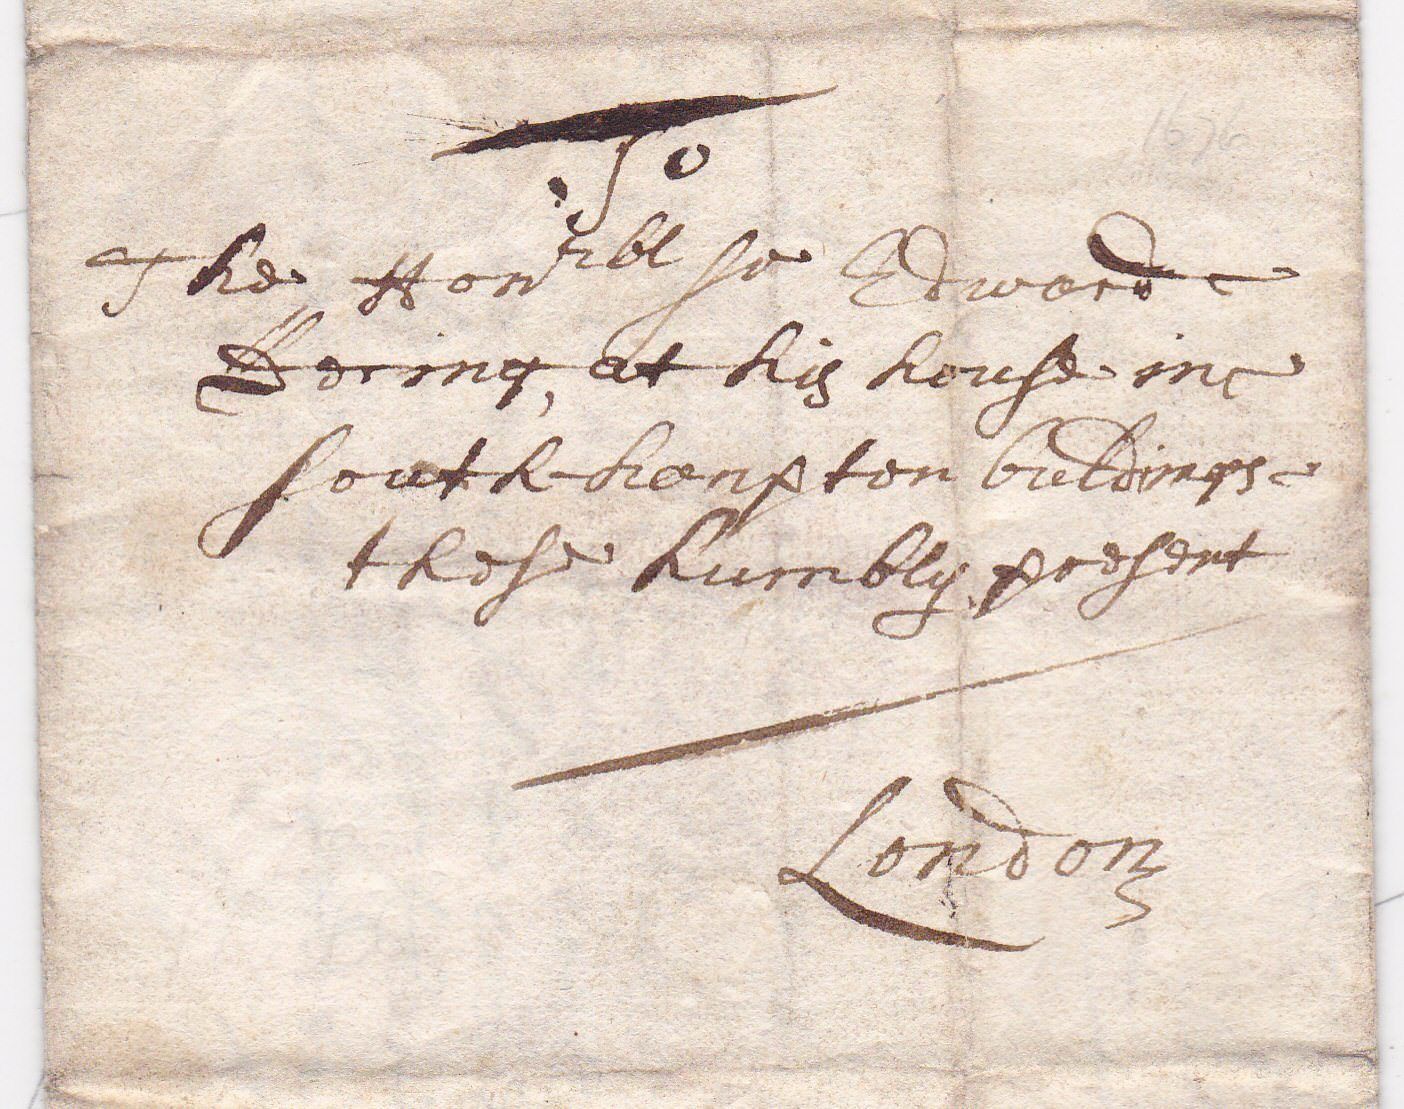 1676
To
The Honrbl Sr Edward
Dering, at his house in
Southhampton buldings
these humbly present
London